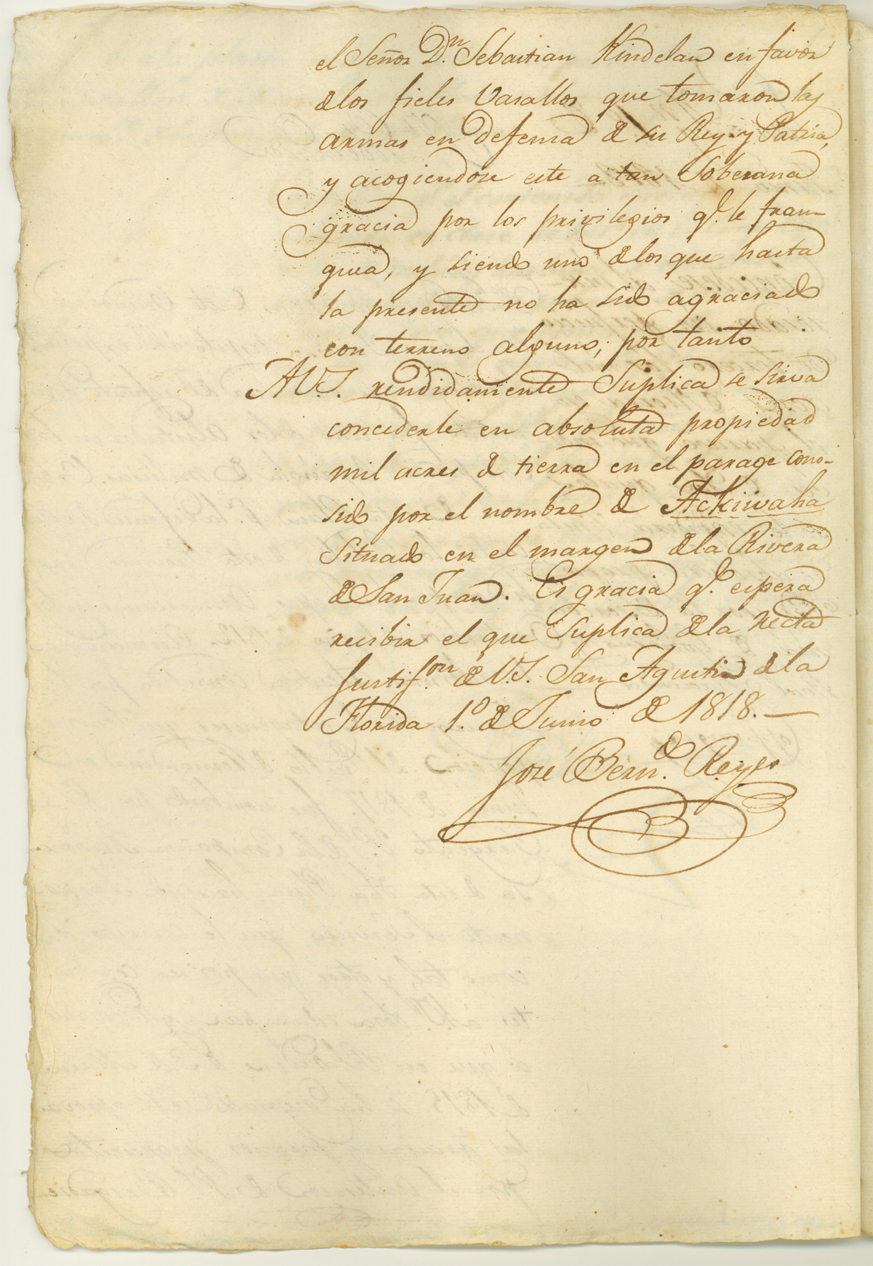 el Señor Dn. Sebastian Kindelan en favor
de los fieles Vasallos que tomaron las
armas en defensa de su Rey y Patria,
y acogiendose este a tan Soberana
gracia por los privilegios qe. le fran-
quea, y siendo uno de los que hasta
la presente no ha sido agraciado
con terreno alguno; por tanto
A V.S. rendidamente Suplica se sirva
concederle en absoluta propiedad
mil acres de tierra en el parage cono-
sido por el nombre de Ackiwaha
situado en el margen de la Rivera
de San Juan. Es gracia qe. espera
recibir el que suplica de la recta
Justifon. de V.S. San Agustin de la
Florida 1.º de Junio de 1818.—
José Berndo. Reyes